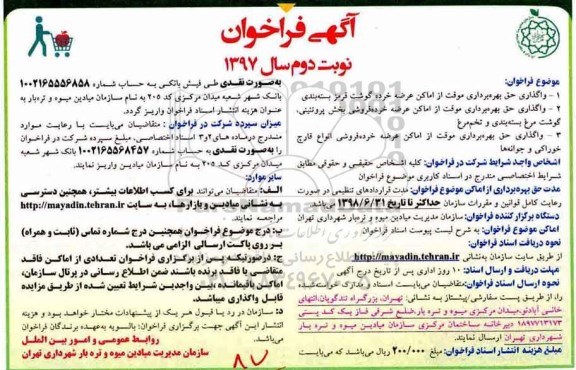 آگهی فراخوان
نوبت دوم سال ۱۳۹۷
موضوع فراخوان:
۱ - واگذاری حق بهره‌برداری موقت از اماکن عرضه خرده گوشت قرمز بسته‌بندی
۲ - واگذاری حق بهره‌برداری موقت از اماکن عرضه خرده‌فروشی بخش پروتئینی، گوشت مرغ بسته‌بندی و تخم‌مرغ
۳ - واگذاری حق بهره‌برداری موقت از اماکن عرضه خرده‌فروشی انواع قارچ خوراکی و جوانه‌ها
اشخاص واجد شرایط شرکت در فراخوان: کلیه اشخاص حقیقی و حقوقی مطابق شرایط اختصاصی مندرج در اسناد کاربری موضوع فراخوان
مدت حق بهره‌برداری از اماکن موضوع فراخوان: مدت قراردادهای تنظیمی در صورت رعایت کامل قوانین و مقررات سازمان حداکثر تا تاریخ ۱۳۹۸/۶/۳۱ می‌باشد
دستگاه برگزار کننده فراخوان: سازمان مدیریت میادین میوه و تره‌بار شهرداری تهران
اماکن موضوع فراخوان: به شرح لیست پیوست اسناد فراخوان
نحوه دریافت اسناد فراخوان:
از طریق سایت سازمان به‌نشانی http://mayadin.tehran.ir
مهلت دریافت و ارسال اسناد: ۱۰ روز اداری پس از تاریخ درج آگهی
نحوه ارسال اسناد فراخوان: متقاضیان می‌بایست اسناد و مدارک خواسته‌شده را، از طریق پست سفارشی/پیشتاز به نشانی: تهران، بزرگراه تندگویان، انتهای خالی آبادتو، میدان مرکزی میوه و تره بار، ضلع شرقی فاز یک کد پستی ۱۸۹۷۷۱۳۱۷۳ دبیرخانه ساختمان مرکزی سازمان میادین میوه و تره بار شهرداری تهران ارسال نمایند.
مبلغ هزینه انتشار اسناد فراخوان: مبلغ ۲۰۰/۰۰۰ ریال می‌باشد که می‌بایست
به‌صورت نقدی طی فیش بانکی به حساب شماره ۱۰۰۲۱۶۵۵۵۶۸۵۸ بانک شهر شعبه میدان مرکزی کد ۲۰۵ به نام سازمان میادین میوه و تره‌بار به عنوان هزینه انتشار اسناد فراخوان واریز گردد.
میزان سپرده شرکت در فراخوان: متقاضیان می‌بایست با رعایت موارد مندرج در ماده های ۲و۳ اسناد اختصاصی، مبلغ سپرده شرکت در فراخوان را به‌صورت نقدی به حساب شماره ۱۰۰۲۱۶۵۵۶۸۴۵۷ بانک شهر شعبه میدان مرکزی کد ۲۰۵ به نام سازمان میادین واریز نمایند.
سایر موارد:
الف: متقاضیان می‌توانند برای کسب اطلاعات بیشتر، همچنین دسترسی به نشانی میادین و بازارها، به سایت http://mayadin.tehran.ir مراجعه نمایند.
ب: درج موضوع فراخوان همچنین درج شماره تماس (ثابت و همراه) بر روی پاکت ارسالی الزامی می‌باشد.
ج: درصورتیکه پس از برگزاری فراخوان تعدادی از اماکن فاقد متقاضی یا فاقد برنده باشند ضمن اطلاع رسانی در پرتال سازمان، اماکن باقیمانده به متقاضیان واجدین شرایط تعیین شده از طریق مزایده قابل واگذاری میباشد.
د: سازمان در رد یا قبول هر یک از پیشنهادات مختار خواهد بود و هزینه انتشار این آگهی جهت برگزاری فراخوان: بالسویه به‌عهده برندگان فراخوان خواهد بود.
روابط عمومی و امور بین الملل
سازمان مدیریت میادین میوه و تره بار شهرداری تهران